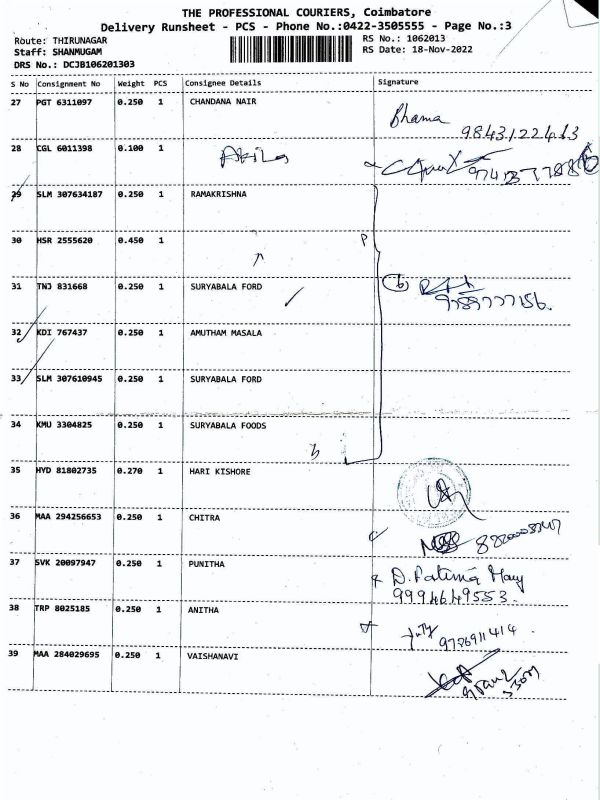 THE PROFESSIONAL COURIERS, Coimbatore
Delivery Runsheet - PCS - Phone No.:0422-3505555 - Page No.:3
Route: THIRUNAGAR
Staff: SHANMUGAM
DRS No.: DCJB106201303
RS No.: 1062013
RS Date: 18-Nov-2022
S No Consignment No Weight PCS Consignee Details Signature
27 PGT 6311097 0.250 1 CHANDANA NAIR Bhama
9843122413
28 CGL 6011398 0.100 1 Akila
29 SLM 307634187 0.250 1 RAMAKRISHNA
30 HSR 2555620 0.450 1
31 TNJ 831668 0.250 1 SURYABALA FORD 6
9789777156.
32 KDI 767437 0.250 1 AMUTHAM MASALA
33 SLM 307610945 0.250 1 SURYABALA FORD
34 KMU 3304825 0.250 1 SURYABALA FOODS
35 HYD 81802735 0.270 1 HARI KISHORE
36 MAA 294256653 0.250 1 CHITRA
37 SVK 20097947 0.250 1 PUNITHA D. Fatima Mary
9994649553.
38 TRP 8025185 0.250 1 ANITHA
9786911414.
39 MAA 284029695 0.250 1 VAISHANAVI